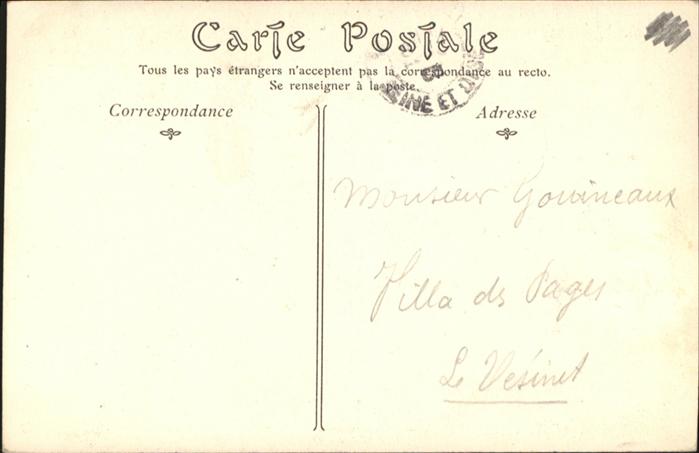 Carte Postale
Tous les pays étrangers n'acceptent pas la correspondance au recto.
Se renseigner à la poste.
Correspondance
Adresse
SEINE ET OISE
Monsieur Gouineaux
Villa des Pages
Le Vésinet